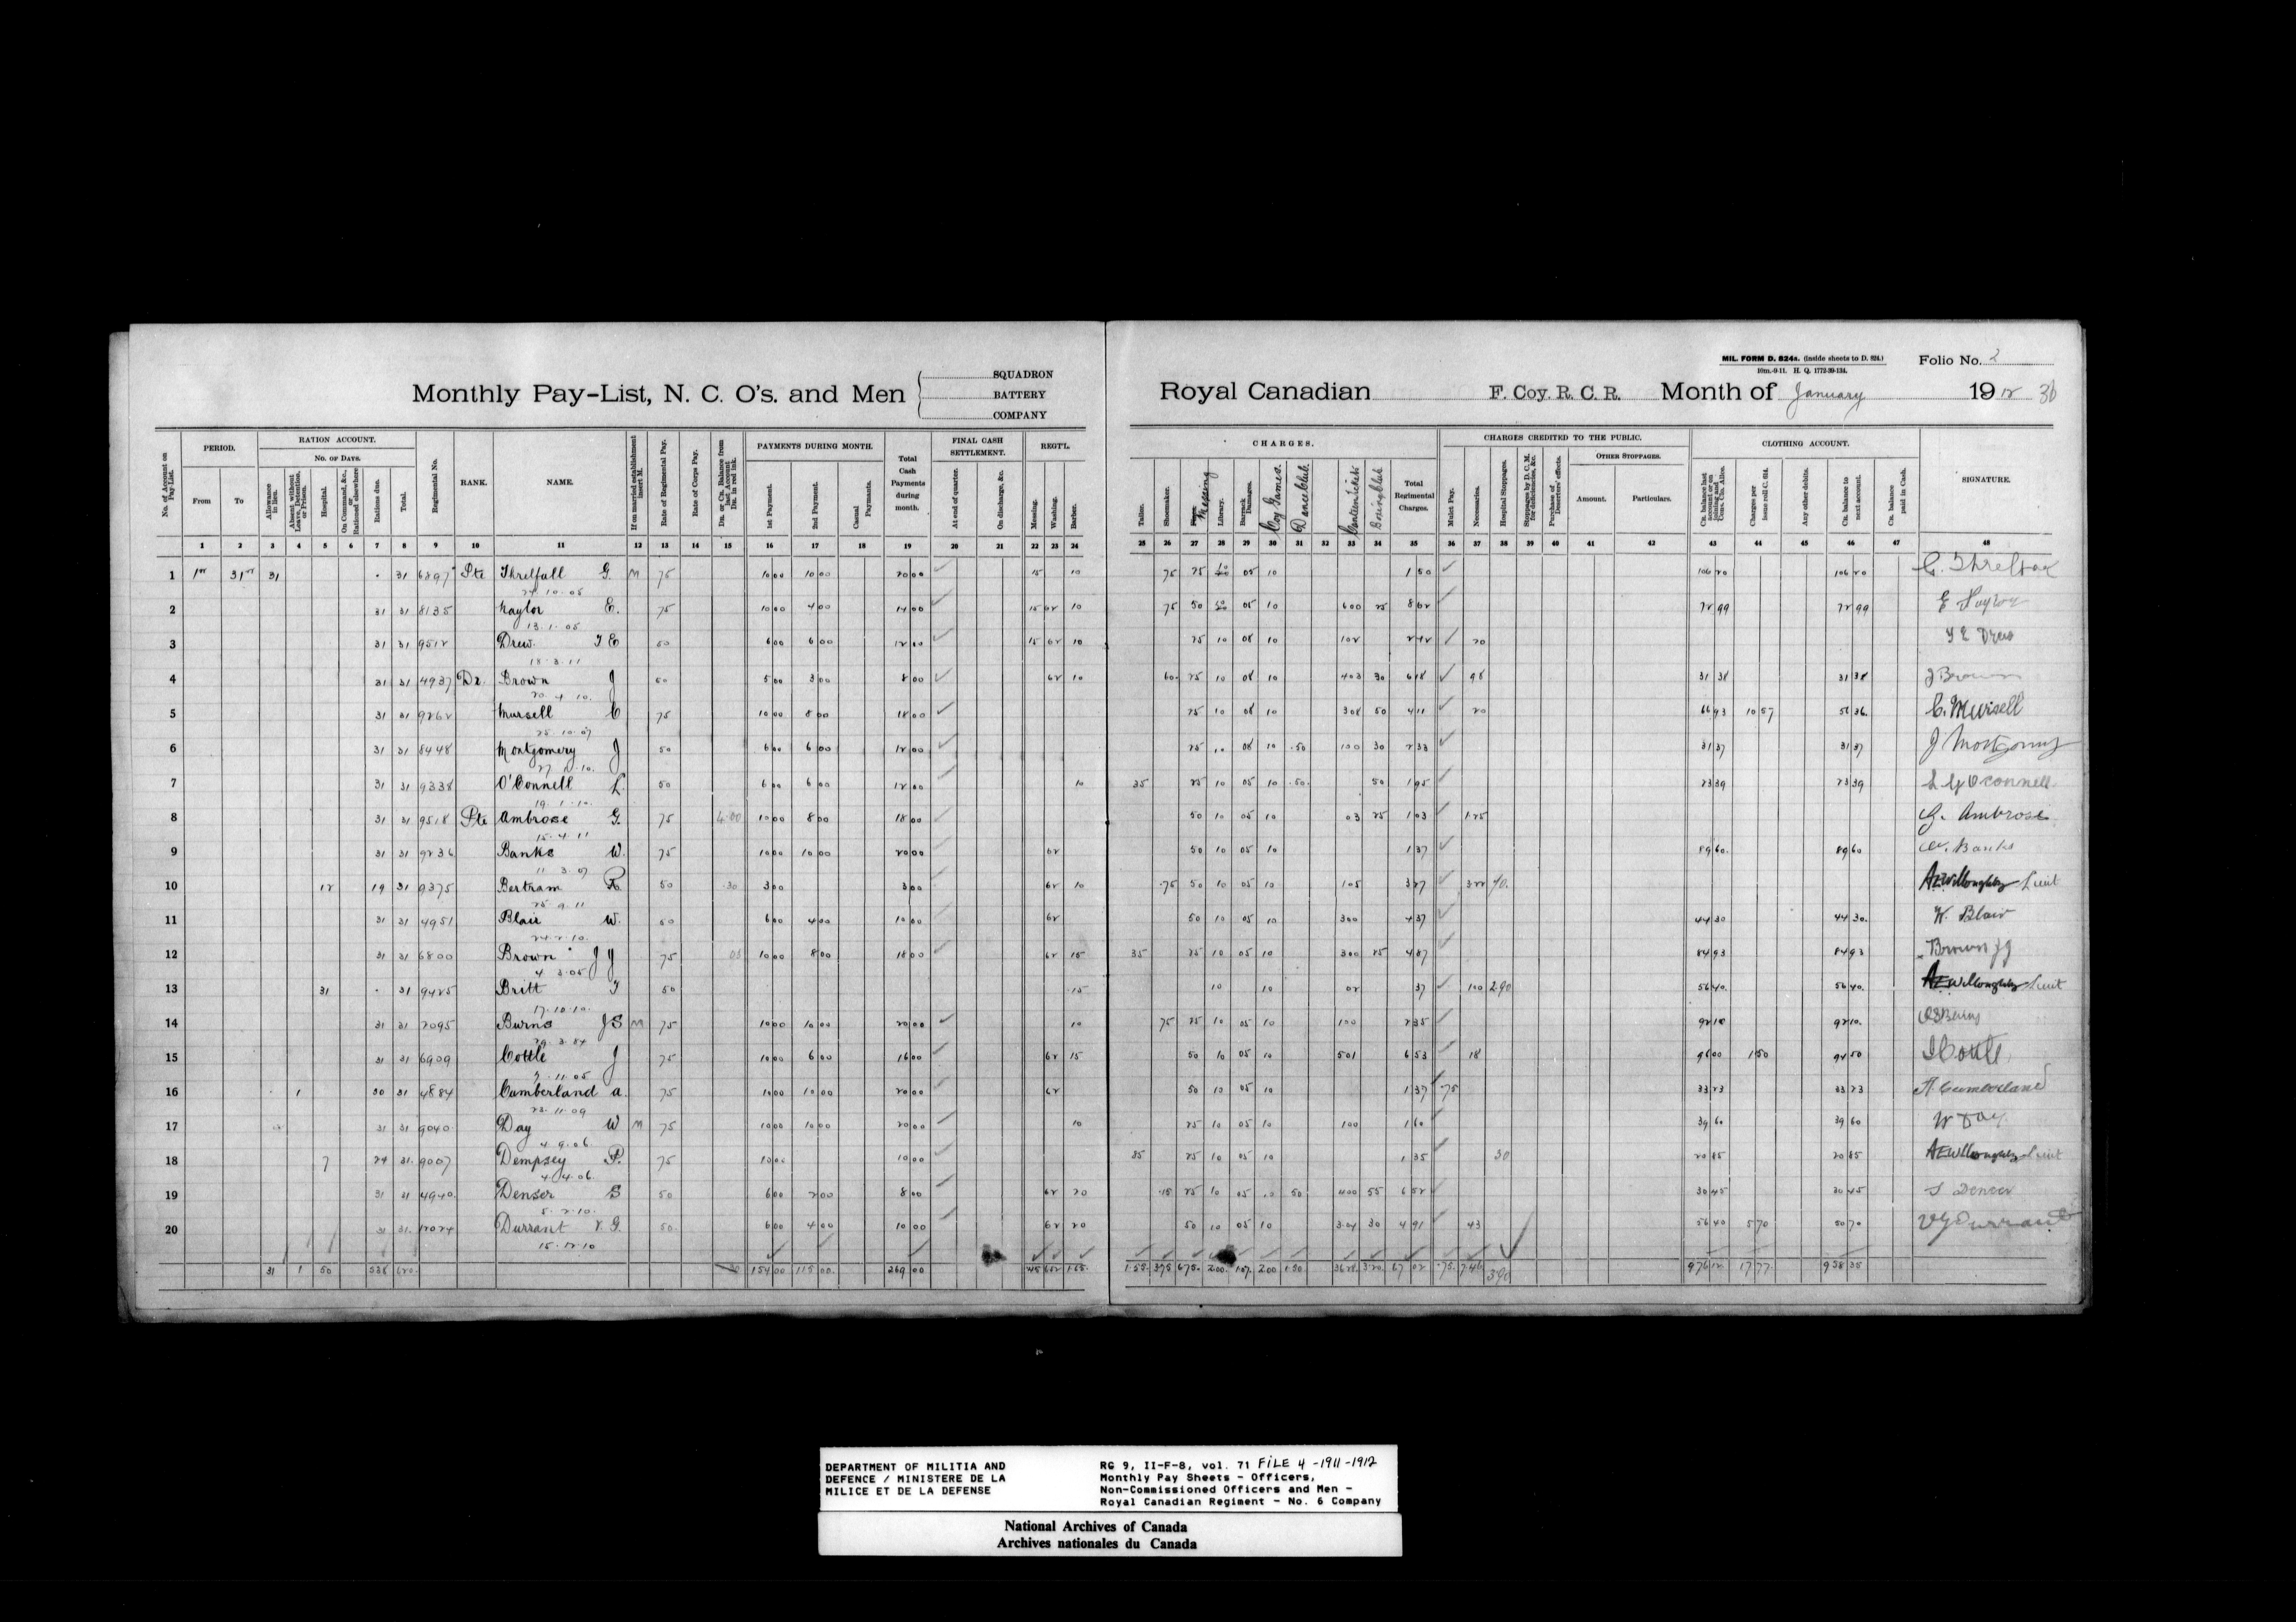 MIL. FORM D. 824A. (inside sheets to D. 824.)
10m.-9-11. H. Q. 1772-39-134.
Folio No. 2
Monthly Pay-List, N. C. O's. and Men
SQUADRON
BATTERY
COMPANY
Royal Canadian F. Coy. R. C. R. Month of January 1912 36
No. of Account on Pay-List.
PERIOD.
From
To
RATION ACCOUNT.
No. of Days.
Allowance in lieu.
Absent without Leave, Detention, or Prison.
Hospital.
On Command, &c., or Rationed elsewhere
Rations due.
Total.
Regimental No.
RANK.
NAME.
If on married establishment insert M.
Rate of Regimental Pay.
Rate of Corps Pay.
Dr. or Cr. Balance from last Account Dr. in red ink.
PAYMENTS DURING MONTH.
1st Payment.
2nd Payment.
Casual Payments.
Total Cash Payments during month.
FINAL CASH SETTLEMENT.
At end of quarter.
On discharge, &c.
REGT'L.
Messing.
Washing.
Barber.
CHARGES.
Tailor.
Shoemaker.
Messing
Library.
Barrack Damages.
Coy Games.
Dance Club.
Canteen Tickets
Boxing Club
Total Regimental Charges.
CHARGES CREDITED TO THE PUBLIC.
Mulct Pay.
Necessaries.
Hospital Stoppages.
Stoppages by D. C. M. for deficiencies, &c.
Purchase of Deserters' effects.
OTHER STOPPAGES.
Amount.
Particulars.
CLOTHING ACCOUNT.
Cr. balance last account or on joining and Cons. Clo. Allce.
Charges per issue roll C. 614.
Any other debits.
Cr. balance to next account.
Cr. balance paid in Cash.
SIGNATURE.
1 2 3 4 5 6 7 8 9 10 11 12 13 14 15 16 17 18 19 20 21 22 23 24 25 26 27 28 29 30 31 32 33 34 35 36 37 38 39 40 41 42 43 44 45 46 47 48
1 1st 31st 31 31 6897 Pte Threlfall G. M 75 10 00 10 00 20 00 15 10 75 25 05 10 1 50 106 20 106 20 G. Threlfall
24.10.05
2 31 31 8135 Naylor E. 75 10 00 4 00 14 00 15 62 10 75 50 05 10 6 00 25 8 62 72 99 72 99 E Naylor
13.1.05
3 31 31 9512 Drew. T E 50 6 00 6 00 12 00 15 62 10 25 10 08 10 1 02 2 42 20 T E Drew
18.3.11
4 31 31 4937 Dr. Brown J 50 5 00 3 00 8 00 62 10 60 25 10 08 10 4 03 30 6 18 98 31 38 31 38 J Brown
20.4.10.
5 31 31 9262 Mursell C 75 10 00 8 00 18 00 25 10 08 10 3 08 50 4 11 20 66 93 10 57 56 36 C. Mursell
25.10.07
6 31 31 8448 Montgomery J 50 6 00 6 00 12 00 25 10 08 10 .50 1 00 30 2 33 31 37 31 37 J Montgomery
7 31 31 9338 O'Connell L. 50 6 00 6 00 12 00 10 35 25 10 05 10 .50 50 1 95 23 39 23 39 L G O'Connell
19.1.10.
8 31 31 9518 Pte Ambrose G. 75 4.00 10 00 8 00 18 00 50 10 05 10 03 25 1 03 1 25 G. Ambrose
15.4.11
9 31 31 9236 Banks W. 75 10 00 10 00 20 00 62 50 10 05 10 1 37 89 60 89 60 W. Banks
11.3.07
10 12 19 31 9375 Bertram R. 50 .30 3 00 3 00 62 10 .75 50 10 05 10 1 05 3 27 3 22 90 AEWilloughby Lieut
25.9.11
11 31 31 4951 Blair W. 50 6 00 4 00 10 00 62 50 10 05 10 3 00 4 37 44 30 44 30 W. Blair
24.2.10.
12 31 31 6800 Brown J J 75 05 10 00 8 00 18 00 62 15 35 25 10 05 10 3 00 25 4 87 84 93 84 93 Brown J J
4.3.05
13 31 31 9425 Britt T 50 15 10 10 02 37 1 00 2.90 56 40 56 40 AEWilloughby Lieut
17.10.10.
14 31 31 7095 Burns J S M 75 10 00 10 00 20 00 10 75 25 10 05 10 1 00 2 35 92 10 92 10 J S Burns
29.3.84
15 31 31 6909 Cottle J 75 10 00 6 00 16 00 62 15 50 10 05 10 5 01 6 53 18 96 00 1 50 94 50 J Cottle
7.11.05
16 1 30 31 4884 Cumberland A. 75 10 00 10 00 20 00 62 50 10 05 10 1 37 .75 33 23 33 23 A. Cumberland
23.11.09
17 31 31 9040 Day W M 75 10 00 10 00 20 00 10 25 10 05 10 1 00 1 60 39 60 39 60 W Day
4.9.06
18 7 24 31 9007 Dempsey P. 75 10 00 10 00 85 25 10 05 10 1 35 30 20 85 20 85 AEWilloughby Lieut
4.4.06
19 31 31 4940 Denser S 50 6 00 2 00 8 00 62 20 .15 25 10 05 10 50 4 00 55 6 52 30 45 30 45 S Denser
5.2.10.
20 31 31 12024 Durrant V. G. 50 6 00 4 00 10 00 62 20 50 10 05 10 3 04 30 4 91 43 56 40 5 70 50 70 V G Durrant
15.12.10
31 1 50 538 620 154 00 115 00 269 00 45 1.65 1.55 3.75 6.75 2.00 1.07 2.00 1.50 36 28 3.20 67 02 .75 7.46 3.90 976 12 17 77 958 35
DEPARTMENT OF MILITIA AND
DEFENCE / MINISTERE DE LA
MILICE ET DE LA DEFENSE
RG 9, II-F-8, vol. 71 FILE 4 -1911-1912
Monthly Pay Sheets - Officers,
Non-Commissioned Officers and Men -
Royal Canadian Regiment - No. 6 Company
National Archives of Canada
Archives nationales du Canada